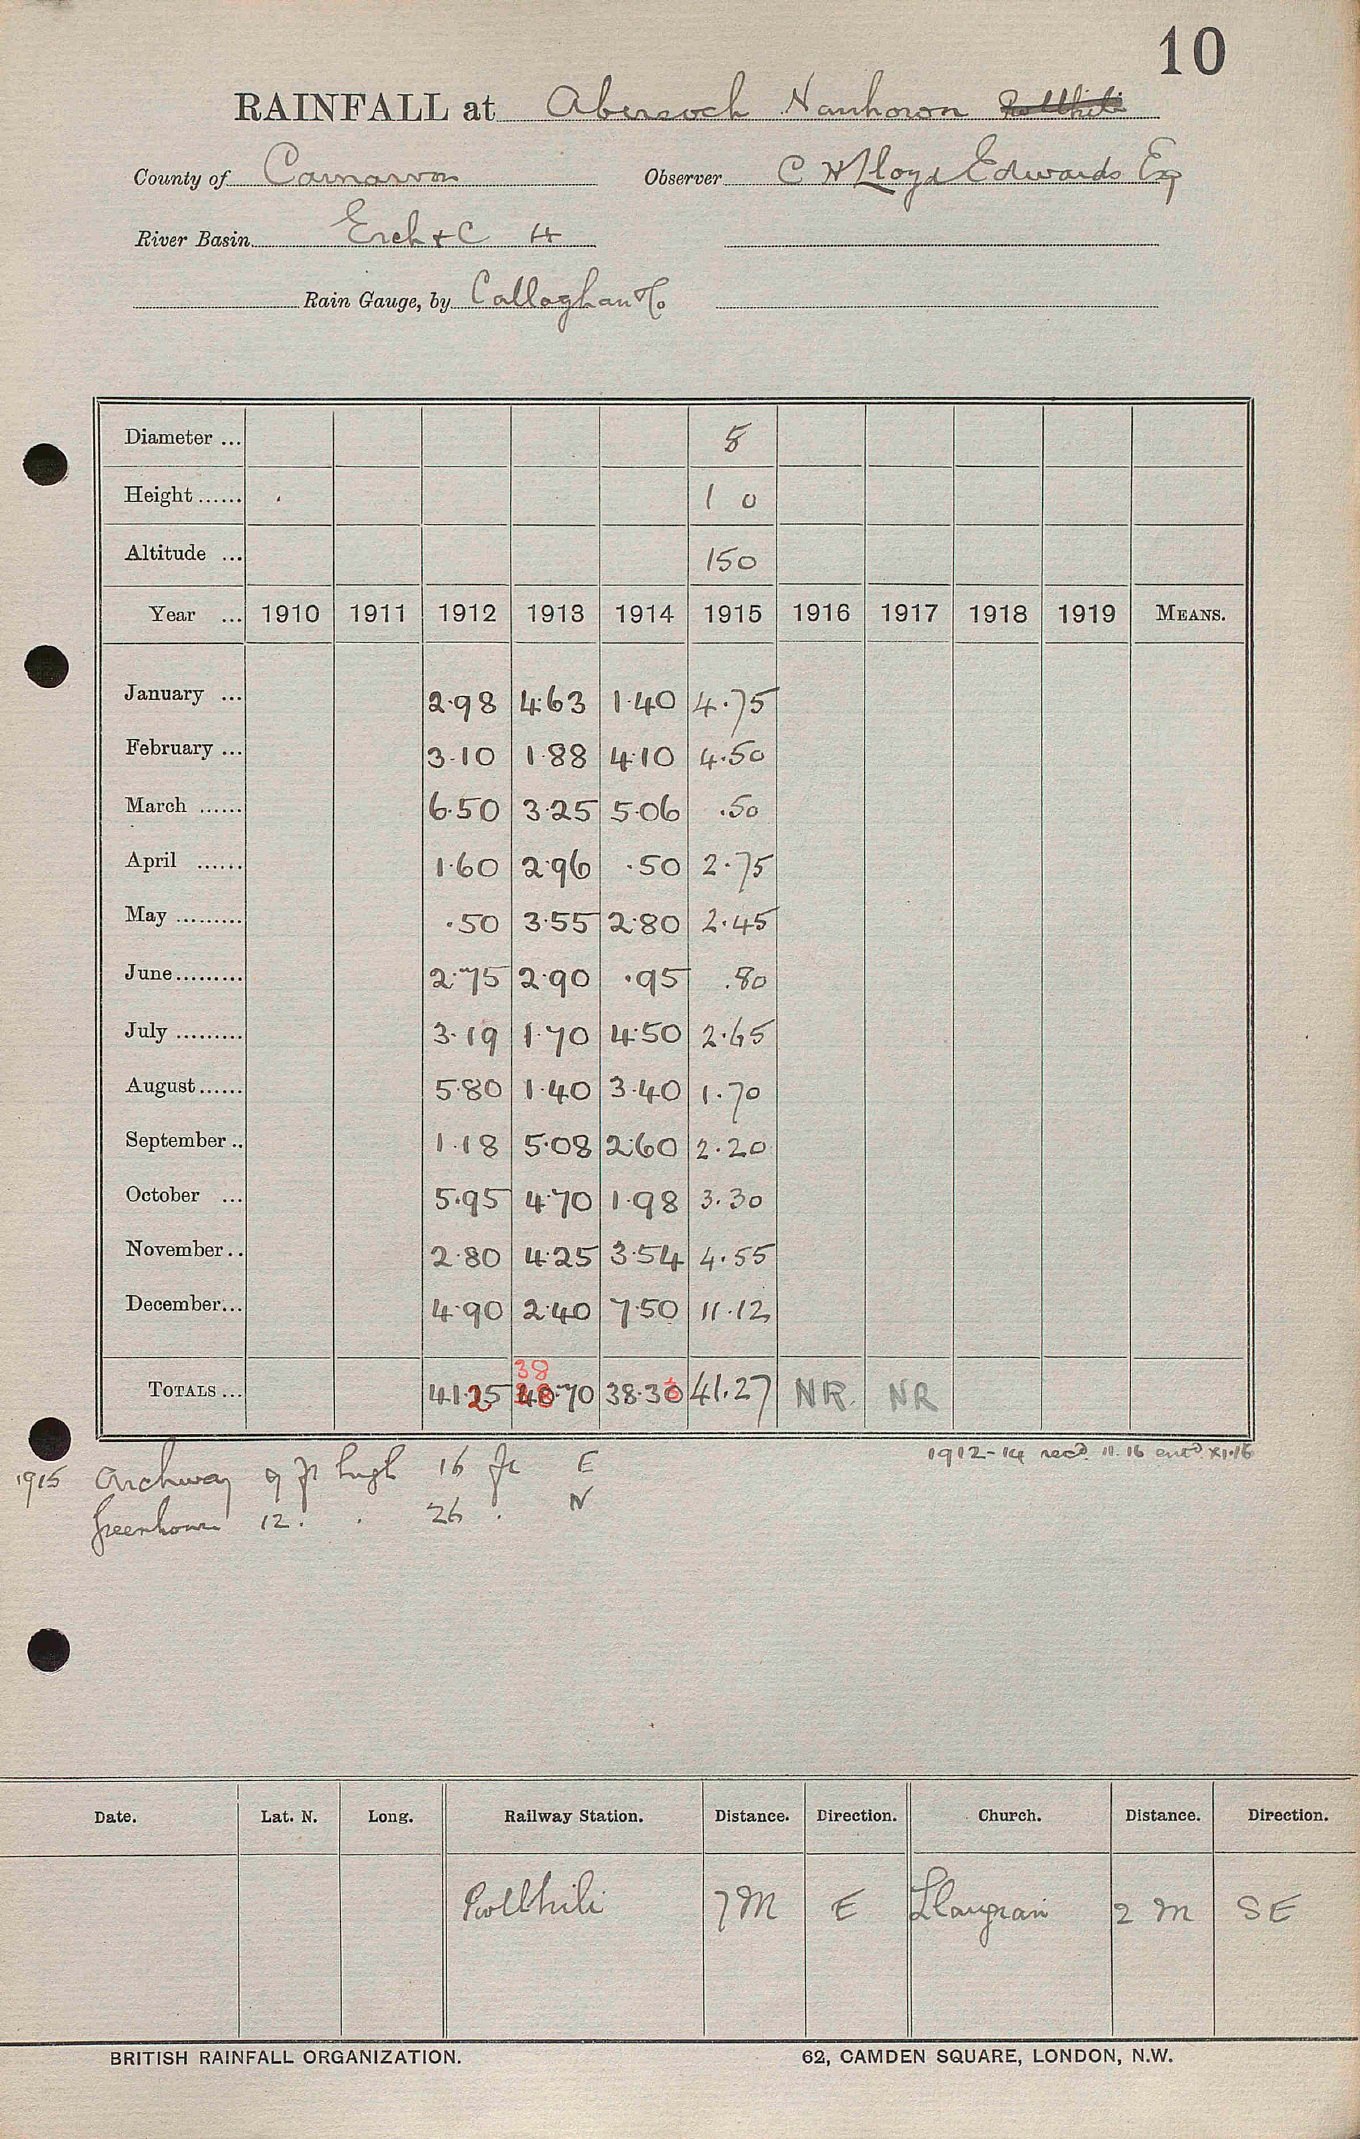 10
RAINFALL at Abersoch Nanhoron Pwllheli
County of Carnarvon Observer C W Lloyd Edwards Esq
River Basin Erch + C 4
Rain Gauge, by Callaghan & Co
Diameter ... 8
Height ...... 1 0
Altitude ... 150
Year ... 1910 1911 1912 1913 1914 1915 1916 1917 1918 1919 MEANS.
January ... 2.98 4.63 1.40 4.75
February ... 3.10 1.88 4.10 4.50
March ...... 6.50 3.25 5.06 .50
April ...... 1.60 2.96 .50 2.75
May ......... .50 3.55 2.80 2.45
June ......... 2.75 2.90 .95 .80
July ......... 3.19 1.70 4.50 2.65
August ...... 5.80 1.40 3.40 1.70
September .. 1.18 5.08 2.60 2.20
October ... 5.95 4.70 1.98 3.30
November .. 2.80 4.25 3.54 4.55
December ... 4.90 2.40 7.50 11.12
38
TOTALS ... 41.25 38.70 38.33 41.27 NR NR
1912-14 recd. 11.16 entd XI.16
1915 Archway 9 ft high 16 ft E
Greenhouse 12 . . 26 . N
Date. Lat. N. Long. Railway Station. Distance. Direction. Church. Distance. Direction.
Pwllheli 7 M E Llangian 2 M SE
BRITISH RAINFALL ORGANIZATION. 62, CAMDEN SQUARE, LONDON, N.W.